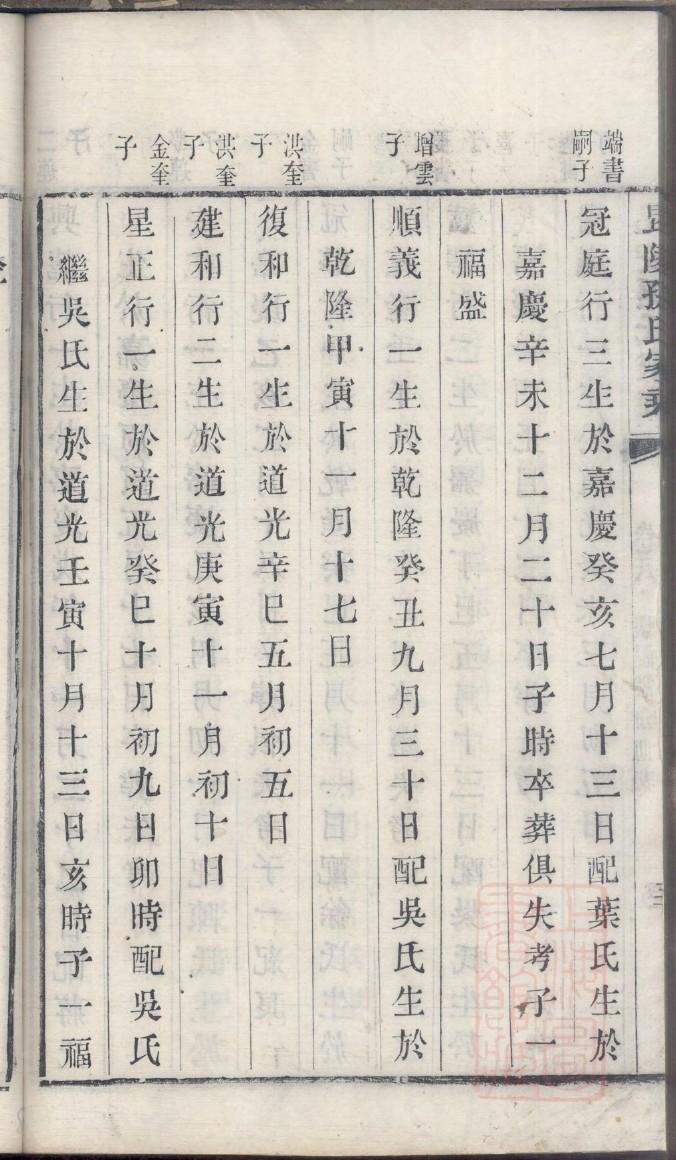 端書
嗣子
冠庭行三生於嘉慶癸亥七月十三日配葉氏生於
嘉慶辛未十二月二十日子時卒葬俱失考子一
福盛
增雲
子
順義行一生於乾隆癸丑九月三十日配吳氏生於
乾隆甲寅十一月十七日
洪奎
子
復和行一生於道光辛巳五月初五日
洪奎
子
建和行二生於道光庚寅十一月初十日
金奎
子
星正行一生於道光癸巳十月初九日卯時配吳氏
繼吳氏生於道光壬寅十月十三日亥時子一福